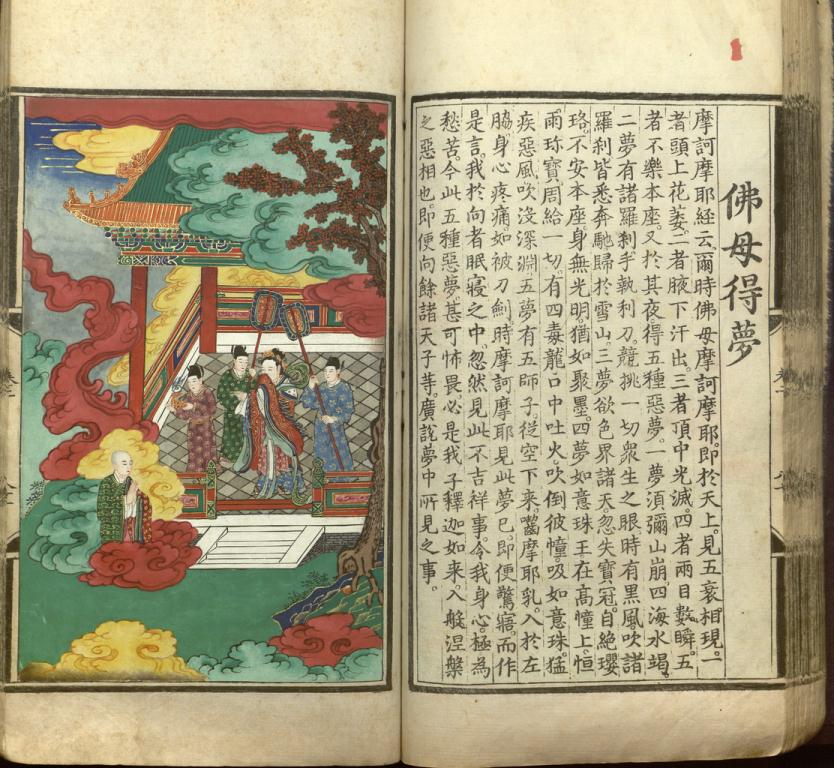 佛母得夢
摩訶摩耶経云爾時佛母摩訶摩耶。即於天上。見五衰相現。一
者頭上花萎。二者腋下汗出。三者頂中光滅。四者兩目數瞬。五
者不樂本座。又於其夜。得五種惡夢。一夢須彌山崩。四海水竭。
二夢有諸羅刹。手執利刀。競挑一切衆生之眼。時有黒風。吹諸
羅刹皆悉奔馳。歸於雪山。三夢欲色界諸天。忽失寶冠。自絶瓔
珞。不安本座。身無光明。猶如聚墨。四夢如意珠王。在髙幢上。恒
雨珎寶。周給一切。有四毒龍。口中吐火。吹倒彼幢。吸如意珠。猛
疾惡風。吹沒深淵。五夢有五師子。從空下來。嚙摩耶乳。入於左
脇。身心疼痛。如被刀劍。時摩訶摩耶。見此夢已。即便驚寤。而作
是言。我於向者眠寢之中。忽然見此不吉祥事。令我身心。極為
愁苦。今此五種惡夢。甚可怖畏。必是我子釋迦如來。入般涅槃
之惡相也。即便向餘諸天子等。廣說夢中所見之事。